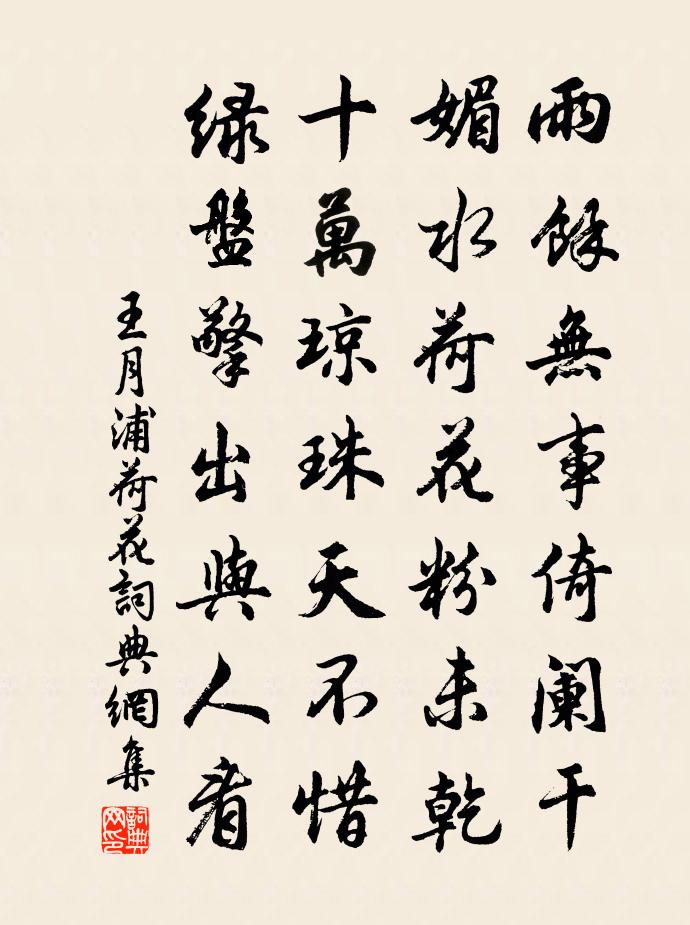 雨餘無事倚闌干
媚水荷花粉未乾
十萬琼珠天不惜
绿盤擎出與人看
王月浦荷花詞典網集
詞典网印